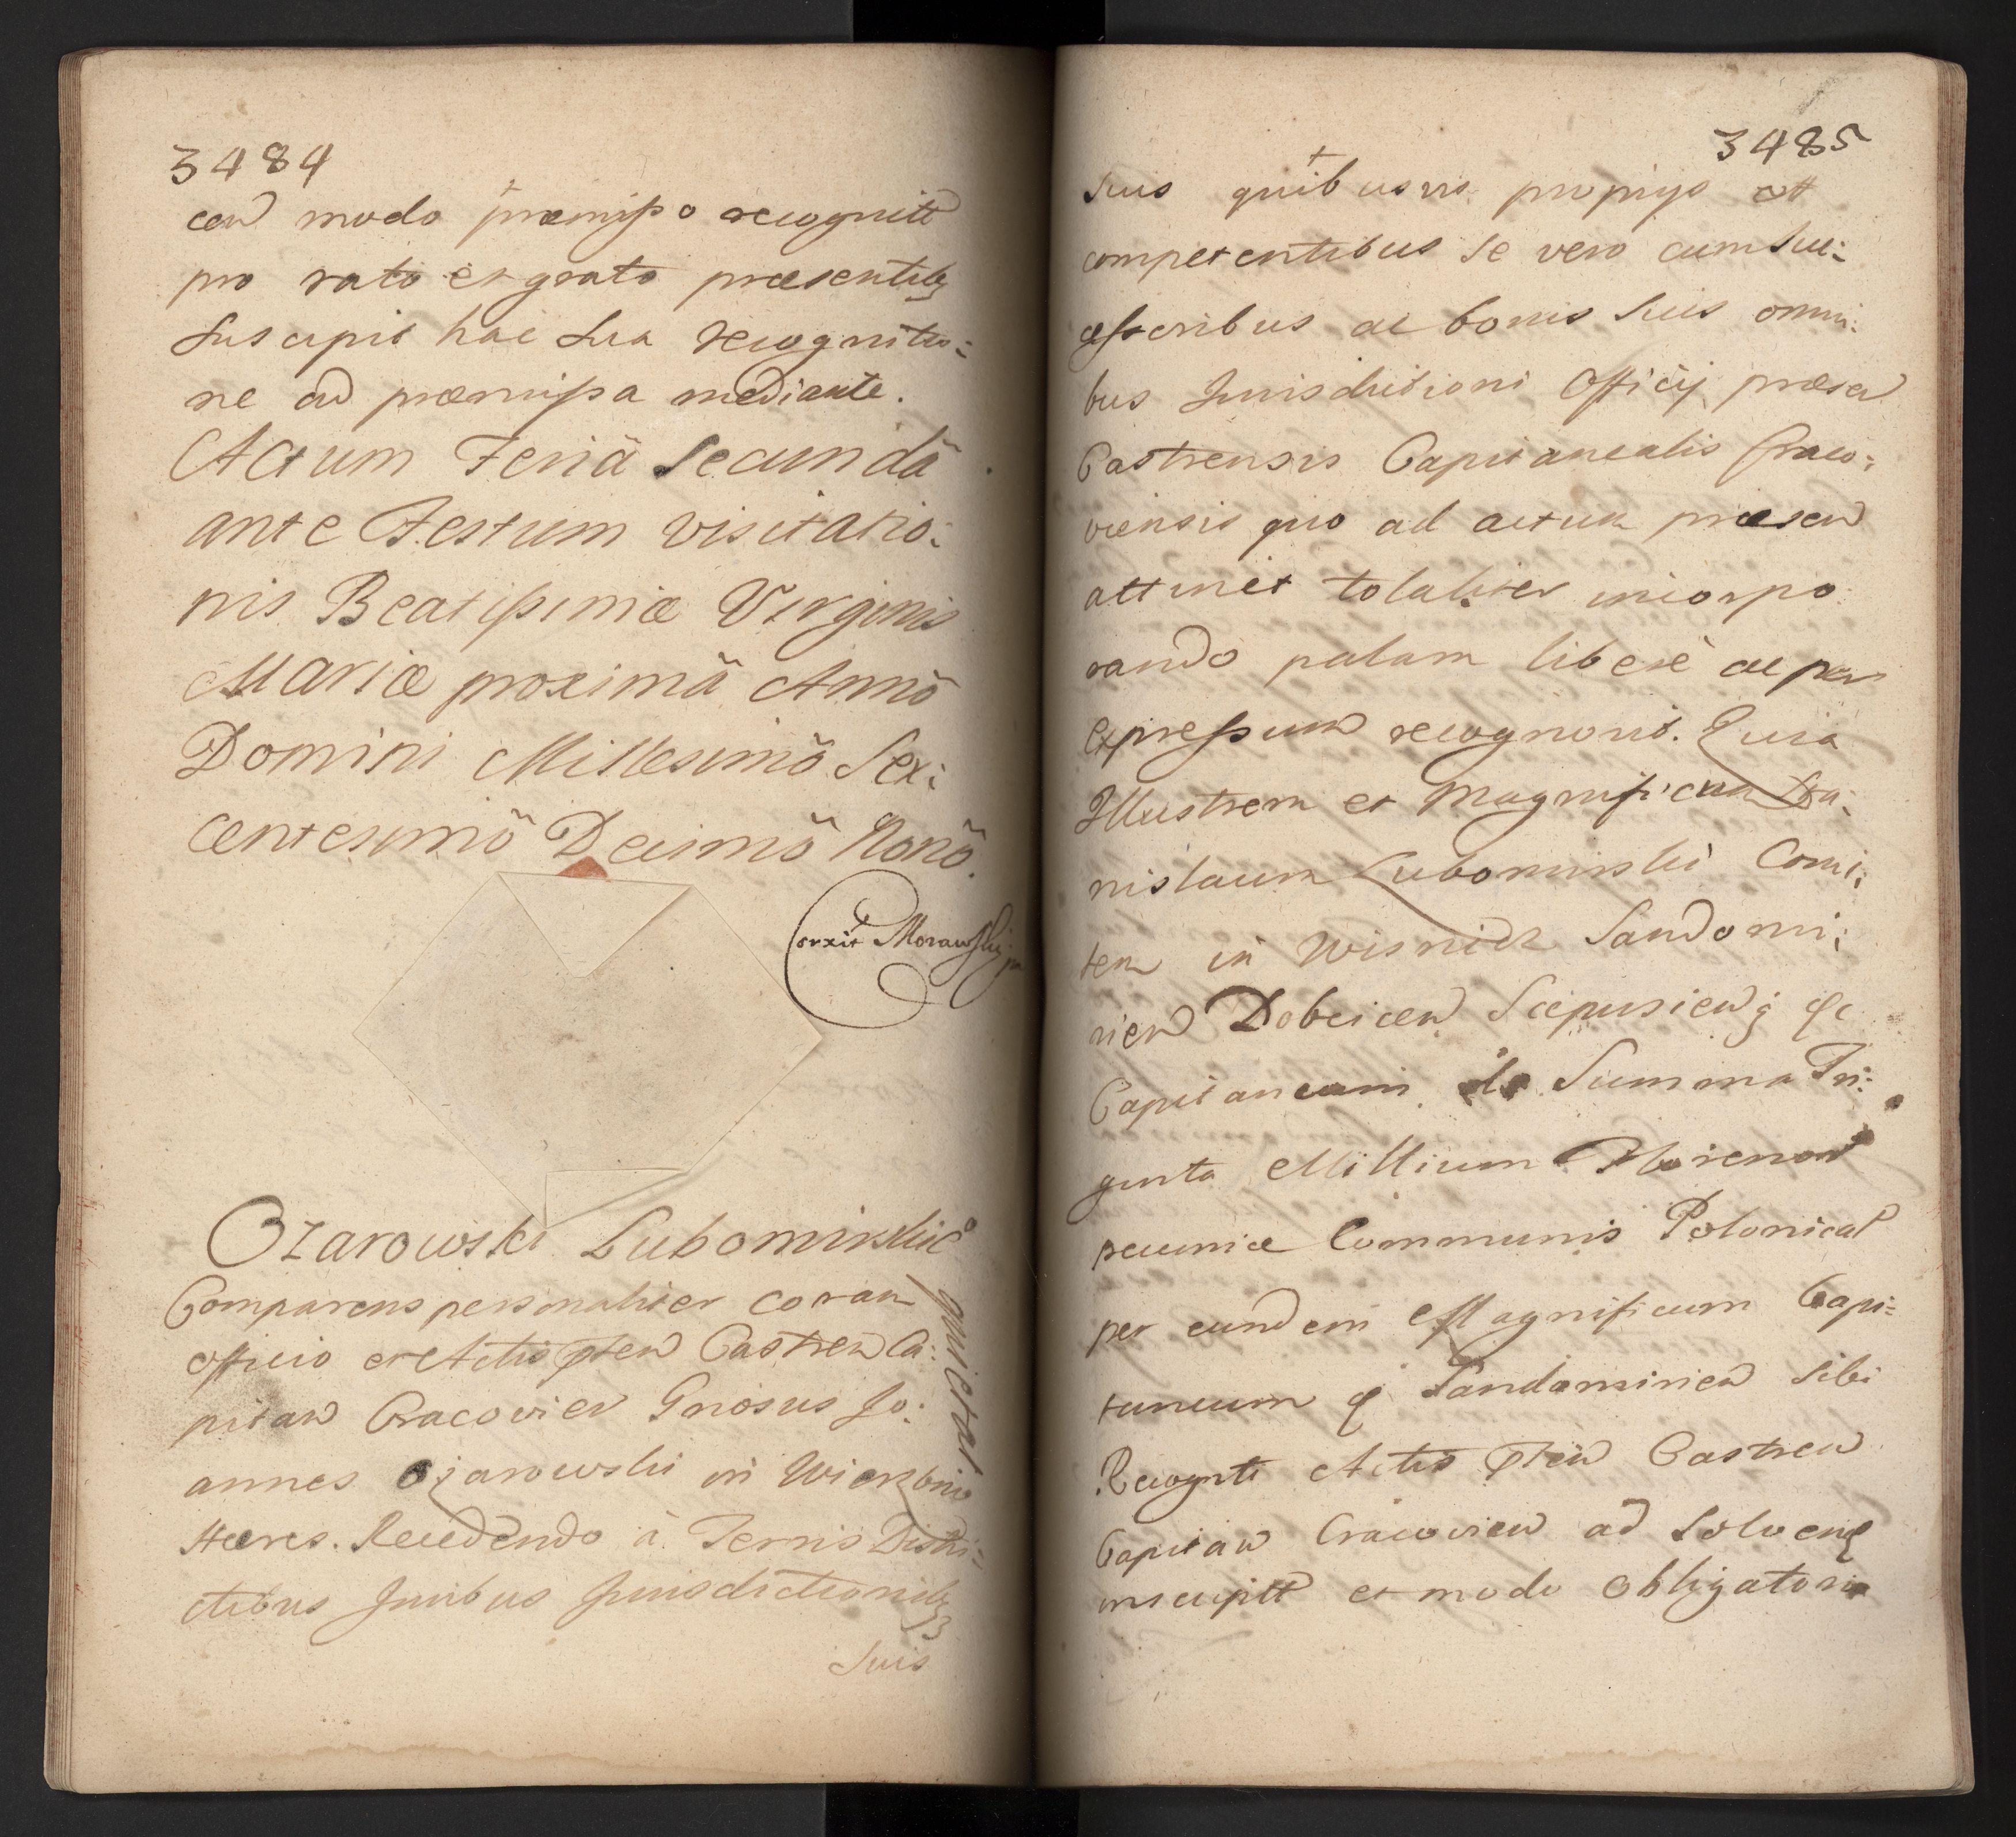 3484
cen modo præmisso recognitt
pro rato et grato præsentibq
Suscipit hac sua recognitio:
ne ad præmissa mediante.
Actum Feriâ Secundâ
ante Festum Visitatio:
nis Beatissimæ Virginis
Mariæ proximâ Annô
Domini Millesimô Sex:
centesimô Decimô Nonô.
Corxit Morawski
Ozarowski Lubomirskie
quietat
Comparens personaliter coram
officio et Actis pñten Castren Ca:
pitan Cracovien Gnosus Jo:
annes Ozarowski in Wierzbno
Hæres. Recedendo â Terris Distri:
ctibus Juribus Jurisdictionibq
Suis
3485
Suis quibusvis propriys ett
competentibus se vero cum suc:
cessoribus ac bonis suis omni:
bus Jurisdictioni Officij præsen
Castrensis Capitanealis Craco:
viensis quo ad actum præsen
attinet totaliter incorpo
rando palam liberè ac per
expressum recognovit. Quia
Illustrem et Magnificum Sta:
nislaum Lubomirski Comi:
tem in Wisnicz Sandomi:
rien Dobcicen Scepusienq &c
Capitaneum de Summa Tri:
ginta Millium Florenor
pecuniæ Communis Polonical
per eundem Magnificum Capi:
taneum Sandomirien sibi
Recognti Actis pñten Castren
Capitan Cracovien ad solven
inscriptt et modo obligatorio